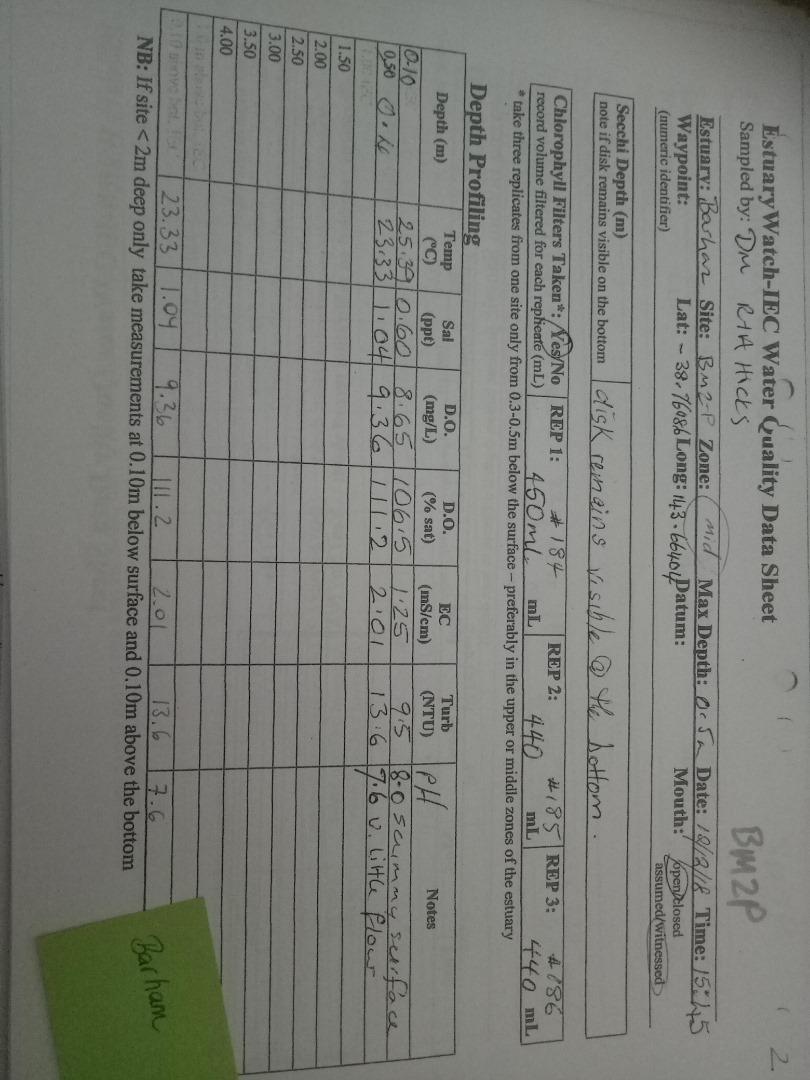 2
BM2P
EstuaryWatch-IEC Water Quality Data Sheet
Sampled by: DM RHA Hicks
Estuary: Barham Site: BM2-P Zone: mid Max Depth: 0.5m Date: 12/18 Time: 15:45
Waypoint: Lat: ~ 38.76086 Long: 143.66404 Datum: Mouth: open/closed
(numeric identifier) assumed/witnessed
Secchi Depth (m)
note if disk remains visible on the bottom disk remains visible @ the bottom.
Chlorophyll Filters Taken*: Yes/No REP 1: #184 REP 2: #185 REP 3: #186
record volume filtered for each replicate (mL) 450ml. mL 440 mL 440 mL
* take three replicates from one site only from 0.3-0.5m below the surface – preferably in the upper or middle zones of the estuary
Depth Profiling
Depth (m) Temp (°C) Sal (ppt) D.O. (mg/L) D.O. (% sat) EC (mS/cm) Turb (NTU) pH Notes
0.10 25.39 0.60 8.65 106.5 1.25 9.5 8.0 scummy surface
0.50 23.33 1.04 9.36 111.2 2.01 13.6 7.6 v. little flow
1.50
2.00
2.50
3.00
3.50
4.00
23.33 1.04 9.36 111.2 2.01 13.6 7.6
NB: If site < 2m deep only take measurements at 0.10m below surface and 0.10m above the bottom
Barham